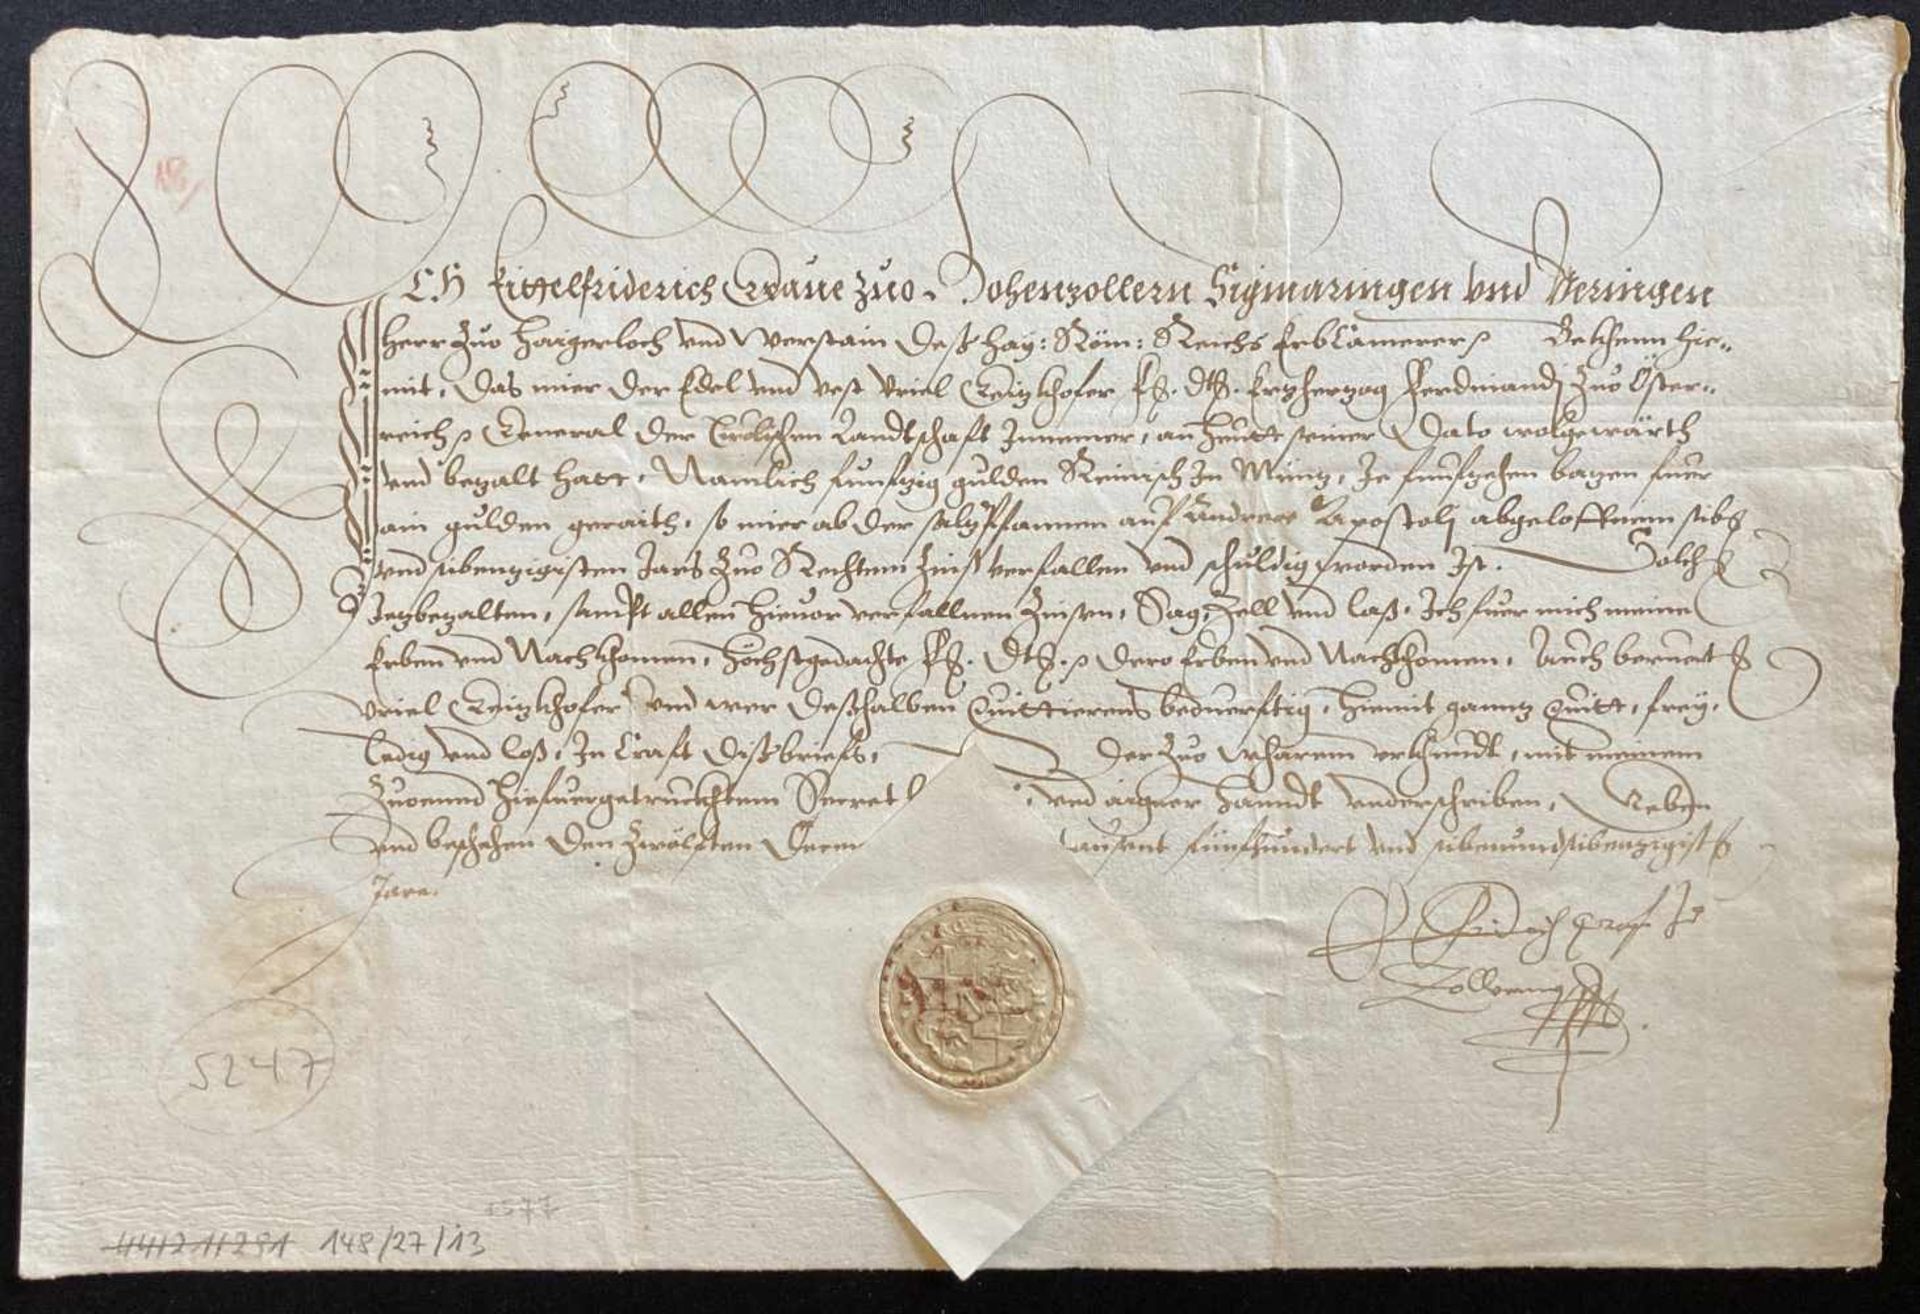 Ich Eittelfriderich Graue zuo Hohenzollern Sigmaringen vnd Veringen
Herr zuo Haigerloch vnd Werstain deß hay: Röm: Reichs ErbCamerer Bekhenn hie-
mit, Das mier der Edel vnd vest Vriel Geizkhofer Fr. Dt. Erzherzog Ferdinandj zuo Öster-
reich General der Tirolischen Landtschafft Innemer, an heutt seiner Dato wolgewärth
vnd bezalt hatt, Namlich funfzig gulden Reinisch In Münz, Je funfzehen bazen fuer
ain gulden geraith, so mier ab der salz Pfannen auf Andreæ Apostolj abgeloffnem siben
vnd sibenzigisten Jars zuo Rechtem Zinß verfallen vnd schuldig worden Ist. Solch
Jezbezalten, sampt allen hieuor verfallnen Zinsen, Sag, Zell vnd laß, Ich fuer mich meine
Erben vnd Nachkhomen, höchstgedachte Fr. Dt. dero Erben vnd Nachkhomen, Auch beruert
Vriel Geizkhofer vnd wer deßhalben Quittierens beduerfftig, Hiemit ganz Quitt, frey,
ledig vnd loß, In Crafft diß briefs, Der zuo wharem vrkhundt, mit meinem
zuoennd hiefuergetruckhtem Secret vnd aigner Hanndt vnderschriben, Geben
vnd beschehen den zwölfften Decem ausent fünfhundert vnd sibenundsibenzigist
Jare.
Fridrich graf zu
Zollern
5247
1577
44121/291 148/27/13